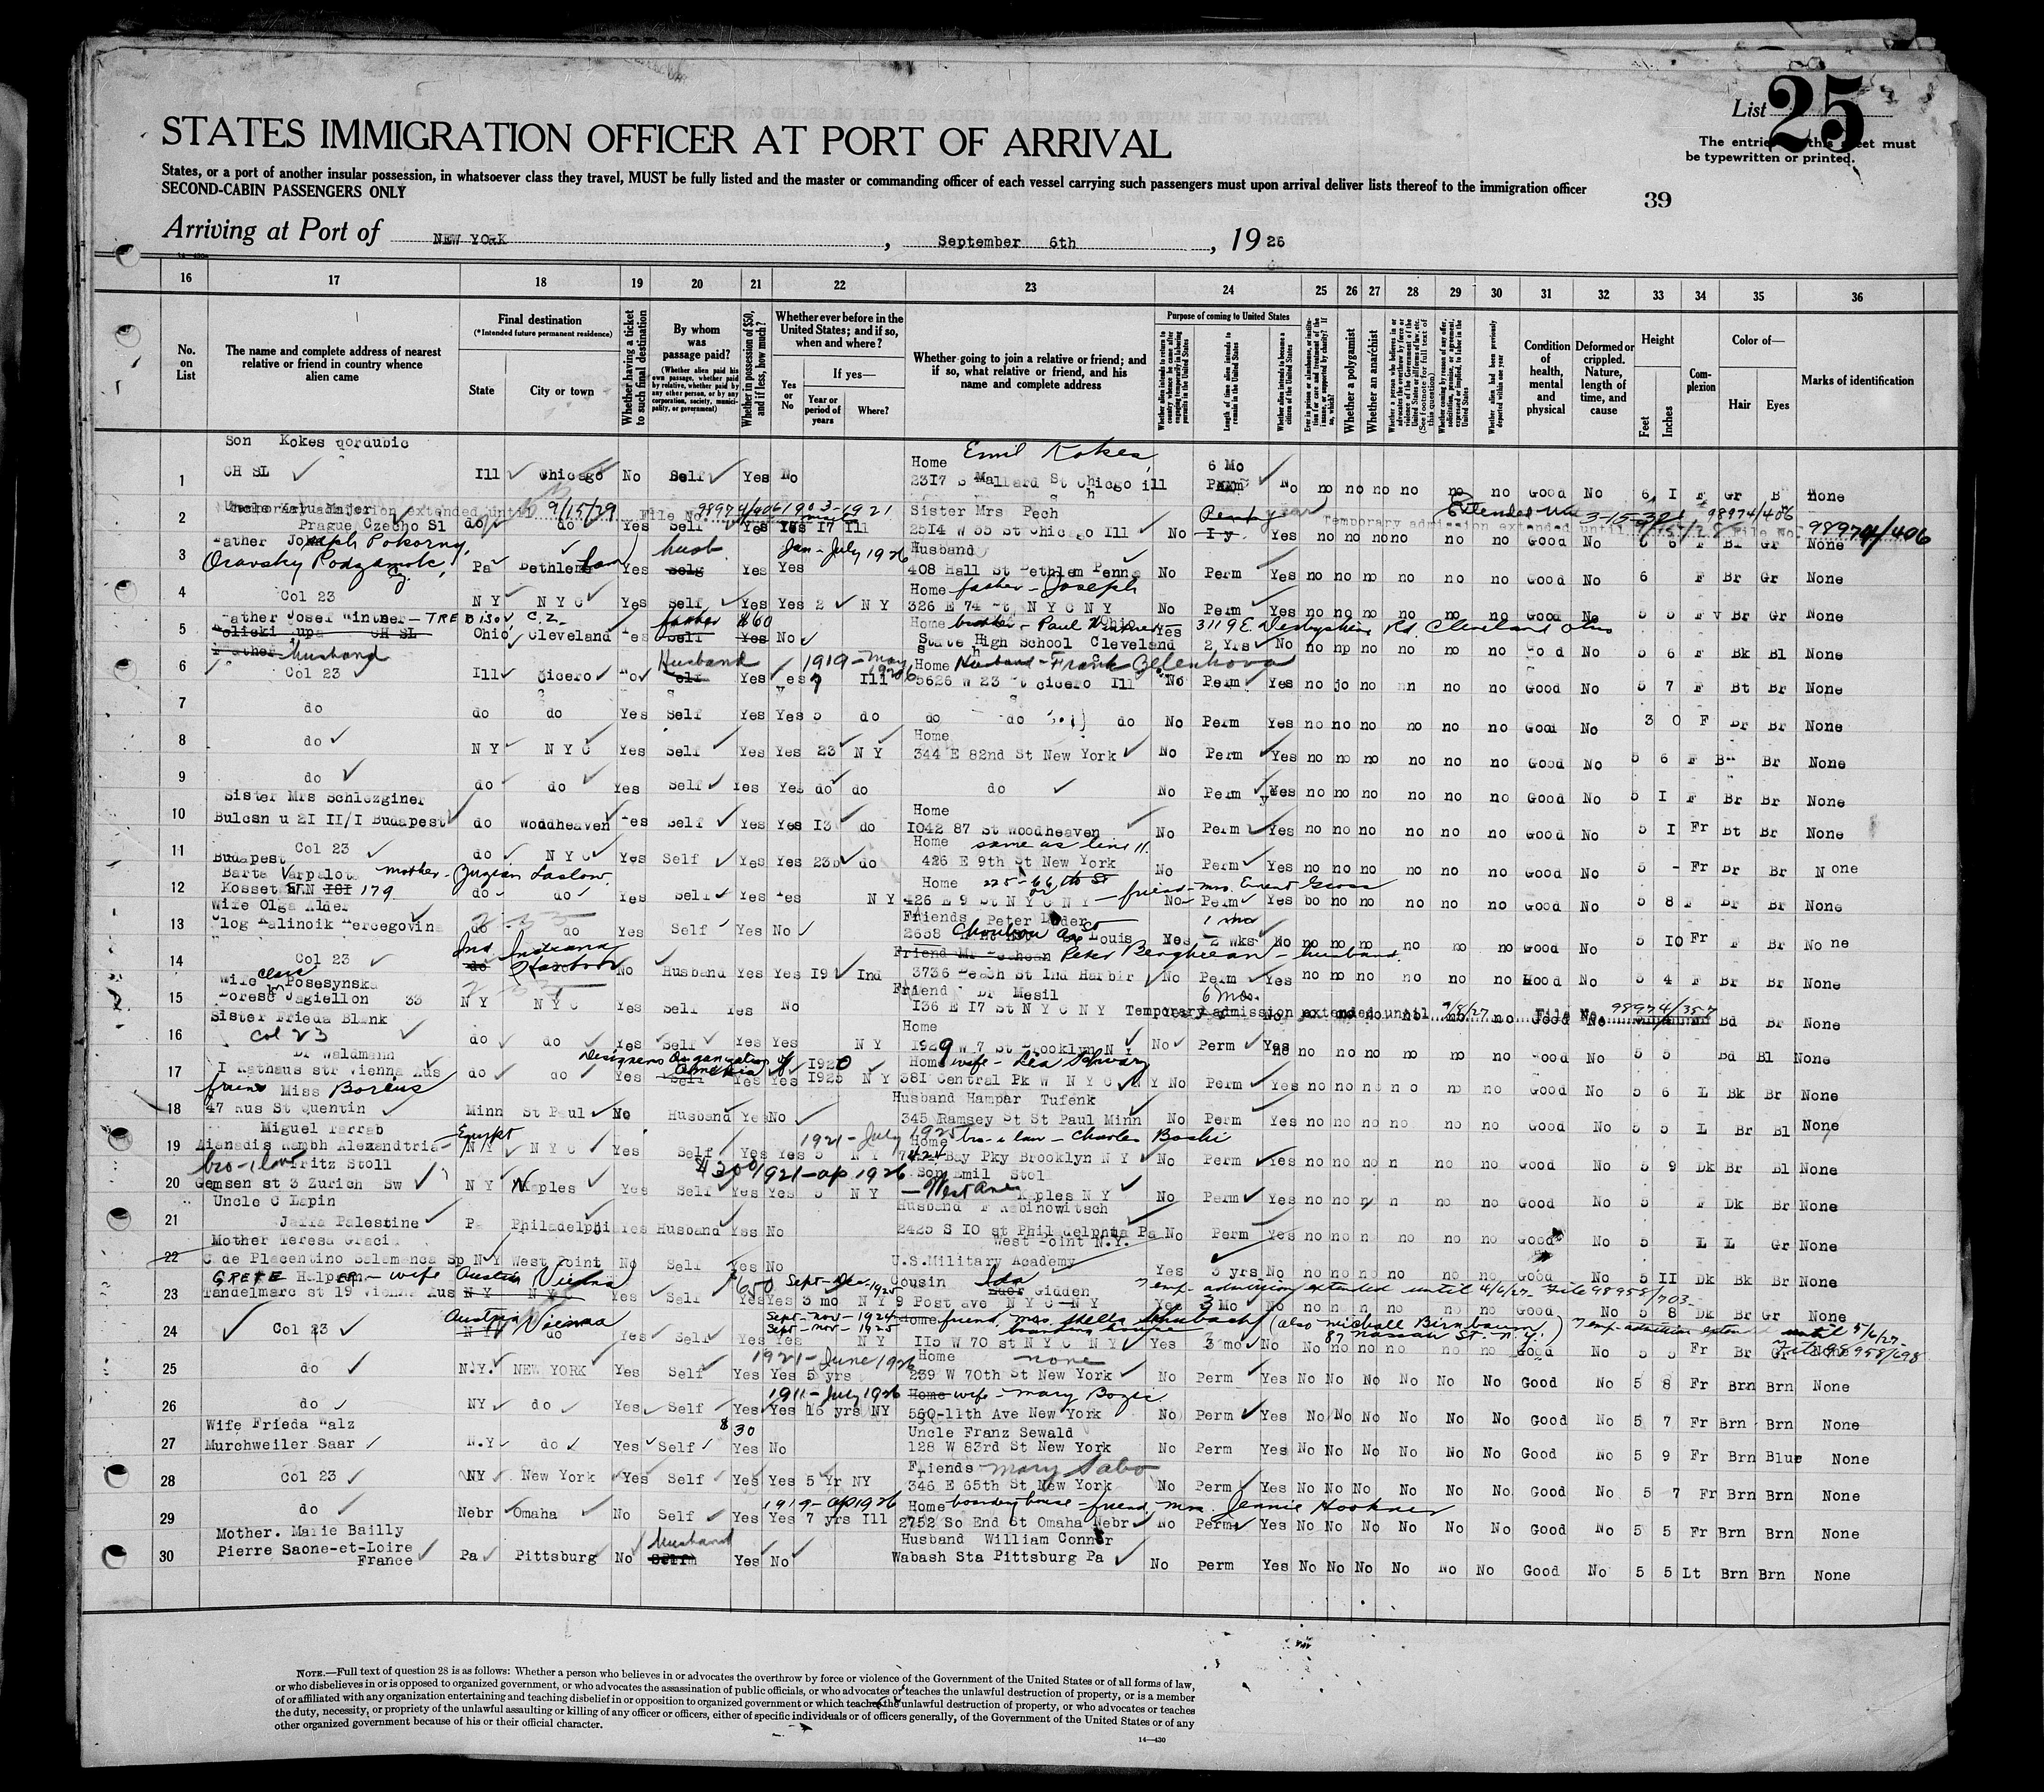 List 25
STATES IMMIGRATION OFFICER AT PORT OF ARRIVAL
The entries this sheet must
be typewritten or printed.
States, or a port of another insular possession, in whatsoever class they travel, MUST be fully listed and the master or commanding officer of each vessel carrying such passengers must upon arrival deliver lists thereof to the immigration officer
SECOND-CABIN PASSENGERS ONLY
39
Arriving at Port of NEW YORK, September 6th, 1926
16 17 18 19 20 21 22 23 24 25 26 27 28 29 30 31 32 33 34 35 36
No. on List
The name and complete address of nearest relative or friend in country whence alien came
Final destination
(*Intended future permanent residence)
State
City or town
Whether having a ticket to such final destination
By whom was passage paid?
(Whether alien paid his own passage, whether paid by relative, whether paid by any other person, or by any corporation, society, municipality, or government)
Whether in possession of $50, and if less, how much?
Whether ever before in the United States; and if so, when and where?
Yes or No
If yes—
Year or period of years
Where?
Whether going to join a relative or friend; and if so, what relative or friend, and his name and complete address
Purpose of coming to United States
Whether alien intends to return to country whence he came after engaging temporarily in laboring pursuits in the United States
Length of time alien intends to remain in the United States
Whether alien intends to become a citizen of the United States
Whether a polygamist
Whether an anarchist
Condition of health, mental and physical
Deformed or crippled. Nature, length of time, and cause
Height
Feet
Inches
Complexion
Color of—
Hair
Eyes
Marks of identification
Son Kokes
Home Emil Kokes
1 CH SL Ill Chicago No Self Yes No 2317 S St Chicgo ill 6 Mo No no no no no no no Good No 6 1 F Gr B None
Sister Mrs Pech
2 Prague Czecho Sl do do Yes Self Yes Yes 17 Ill 2514 W 55 St Chicago Ill No 1 y Yes no no no no no no Good No None
9/15/29 98974/406 1903-1921 Extended 3-15-30 98974/406
Temporary admission extended until File No. 98974/406
Father Joseph Pokorny husb. Jan - July 1926 Husband
3 Oravsky Podzamok Pa Bethlem Yes Yes Yes 408 Hall St Bethlem Penna No Perm Yes no no no no no no Good No 6 F Br Gr None
Home father - Joseph
4 Col 23 N Y N Y C Yes Self Yes Yes 2 N Y 326 E 74 St N Y C N Y No Perm Yes no no no no no no Good No 5 5 F Br Gr None
Father Josef Wintner father $60 Home brother - Paul 3119 E. Derbyshire Rd. Cleveland Ohio
5 Ohio Cleveland Yes No State High School Cleveland Yes 2 Yrs No no no no no no Good No 5 6 F Bk Bl None
husband Husband 1919 - May 1926 Home Husband - Frank Zelenkova
6 Col 23 Ill Cicero No Yes Yes 7 Ill 5626 W 23 St Cicero Ill No Perm Yes no no no no no Good No 5 7 F Bt Br None
7 do do do Yes Self Yes Yes 5 do do do do No Perm Yes no no no no no no Good No 3 0 F Br Br None
Home
8 do N Y N Y C Yes Self Yes Yes 23 N Y 344 E 82nd St New York No Perm Yes no no no no no no Good No 5 6 F Br None
9 do do do Yes Self Yes Yes do do do No Perm Yes no no no no no no Good No 5 1 F Br Br None
Sister Mrs Schlezginer Home
10 Bulcsn u 21 II/I Budapest do Woodheaven Yes Self Yes Yes 13 do 1042 87 St Woodheaven No Perm Yes no no no no no no Good No 5 1 Fr Bt Br None
Home same as line 11.
11 Col 23 do N Y C Yes Self Yes Yes 23 do 426 E 9th St New York No Perm Yes no no no no no no Good No 5 - Fr Br Br None
Budapest
Barta Varpalota mother -
Home 225 - 66th St friend - Mrs. Ernest Gross
12 Kosset 179 do do Yes Self Yes Yes N Y 426 E 9 St N Y C N Y No Perm Yes no no no no no Good No 5 8 F Br Br None
Wife Olga Friends Peter 1 mo
13 Hercegovina do do Yes Self Yes No 2658 St Louis Yes 2 Wks No no no no no no no Good No 5 10 Fr F Br None
Ind. Indiana Harbor Peter - husband.
14 Col 23 No Husband Yes Yes 19 Ind 3736 Peach St Ind Harbir No Perm Yes no no no no no no Good No 5 4 F Br Br None
Wife Posesynska Friend Dr Mesil 6 mos.
15 Jagiellon 33 N Y N Y C Yes Self Yes No 136 E 17 St N Y C N Y Temporary admission extended until 9/8/27 File No. 98974/357 Bd Br None
Sister Frieda Blank Home
16 Col 23 do do Yes Self Yes Yes N Y 1929 W 7 St Brooklyn N Y No Perm Yes no no no no no no no Good No 5 5 Bd Bl None
Dr Waldmann Designers Organization of America 1920 Home wife - Lea
17 1 Rathaus str Vienna Aus do do Yes Yes Yes 1925 N Y 381 Central Pk W N Y C N Y No Perm Yes no no no no no no Good No 5 6 L Bk Br None
friend Miss Boreus Husband Hampar Tufenk
18 47 Rus St Quentin Minn St Paul No Husband Yes No 345 Ramsey St St Paul Minn No Perm Yes no no no no no no Good No 5 5 L Br Bl None
Miguel Farrab Egypt 1921 - July 1925 Home bro-i-law - Charles
19 Alexandtria N Y N Y C Yes Self Yes Yes 5 N Y Bay Pky Brooklyn N Y No Perm Yes no no no no no Good No 5 9 Dk Br Bl None
bro-i-law Fritz Stoll $300 1921 - ap 1926 Son Emil Stol
20 Gemsen st 3 Zurich Sw N Y Naples Yes Self Yes Yes 5 N Y West Ave Naples N Y No Perm Yes no no no no no Good No 5 F Dk Br None
Uncle C Lapin Husband F Rabinowitsch
21 Jaffa Palestine Pa Philadelphi Yes Husband Yes No 2425 S 10 st Philadelphia Pa No Perm Yes no no no no no Good No 5 L L Gr None
Mother Teresa Gracia West Point N.Y.
22 C de Placentino Salamanca Sp N Y West Point No Self Yes No U.S.Military Academy Yes 3 yrs No no no no no no no Good No 5 11 Dk Bk Br None
GRETE Halpern - wife Austria Vienna $650 Sept - Dec. 1925 Cousin Ida Gidden Temp. admission extended until 4/6/27 - File 98958/703
23 Tandelmarc st 19 Vienna Aus N Y Yes Self Yes Yes 3 mo N Y 9 Post ave N Y C N Y Yes 3 Mo No no no no no no Good No 5 8 Dk Br Gr None
Austria Vienna Sept - nov - 1924 Sept - nov - 1925 friend, Mrs. Stella (also Michael Birnbaum) 87 Nassau St. N.Y. Temp admission extended until 5/6/27 File 98958/698
24 Col 23 N Y do Yes Self Yes Yes N Y 115 W 70 st N Y C N Y Yes 3 mo No No no no no no no Good No 5 5 Fr Br Gr None
1921 - June 1926 Home none
25 do N.Y. NEW YORK Yes Self Yes Yes 5 yrs 239 W 70th St New York No Perm Yes No No No No No No Good No 5 8 Fr Brn Brn None
1911 - July 1926 Home wife - Mary Bozic
26 do NY do Yes Self Yes Yes 15 yrs NY 550-11th Ave New York No Perm Yes No No No No No No Good No 5 7 Fr Brn Brn None
Wife Frieda Walz $30 Uncle Franz Sewald
27 Murchweiler Saar N.Y do Yes Self Yes No 128 W 83rd St New York No Perm Yes No No No No No No Good No 5 9 Fr Brn Blue None
Friends Mary Sabo
28 Col 23 NY New York Yes Self Yes Yes 5 Yr NY 346 E 65th St New York No Perm Yes No No No No No No Good No 5 7 Fr Brn Brn None
1919 - ap 1926 Home boarding house - friend, Mrs. Jennie
29 do Nebr Omaha No Self Yes Yes 7 yrs Ill 2752 So End St Omaha Nebr No Perm Yes No No No No No No Good No 5 5 Fr Brn Brn None
Mother. Marie Bailly husband Husband William Conner
30 Pierre Saone-et-Loire France Pa Pittsburg No Yes No Wabash Sta Pittsburg Pa No Perm Yes No No No No No No Good No 5 5 Lt Brn Brn None
NOTE.—Full text of question 28 is as follows: Whether a person who believes in or advocates the overthrow by force or violence of the Government of the United States or of all forms of law,
or who disbelieves in or is opposed to organized government, or who advocates the assassination of public officials, or who advocates or teaches the unlawful destruction of property, or is a member
of or affiliated with any organization entertaining and teaching disbelief in or opposition to organized government or which teaches the unlawful destruction of property, or who advocates or teaches
the duty, necessity, or propriety of the unlawful assaulting or killing of any officer or officers, either of specific individuals or of officers generally, of the Government of the United States or of any
other organized government because of his or their official character.
14—430